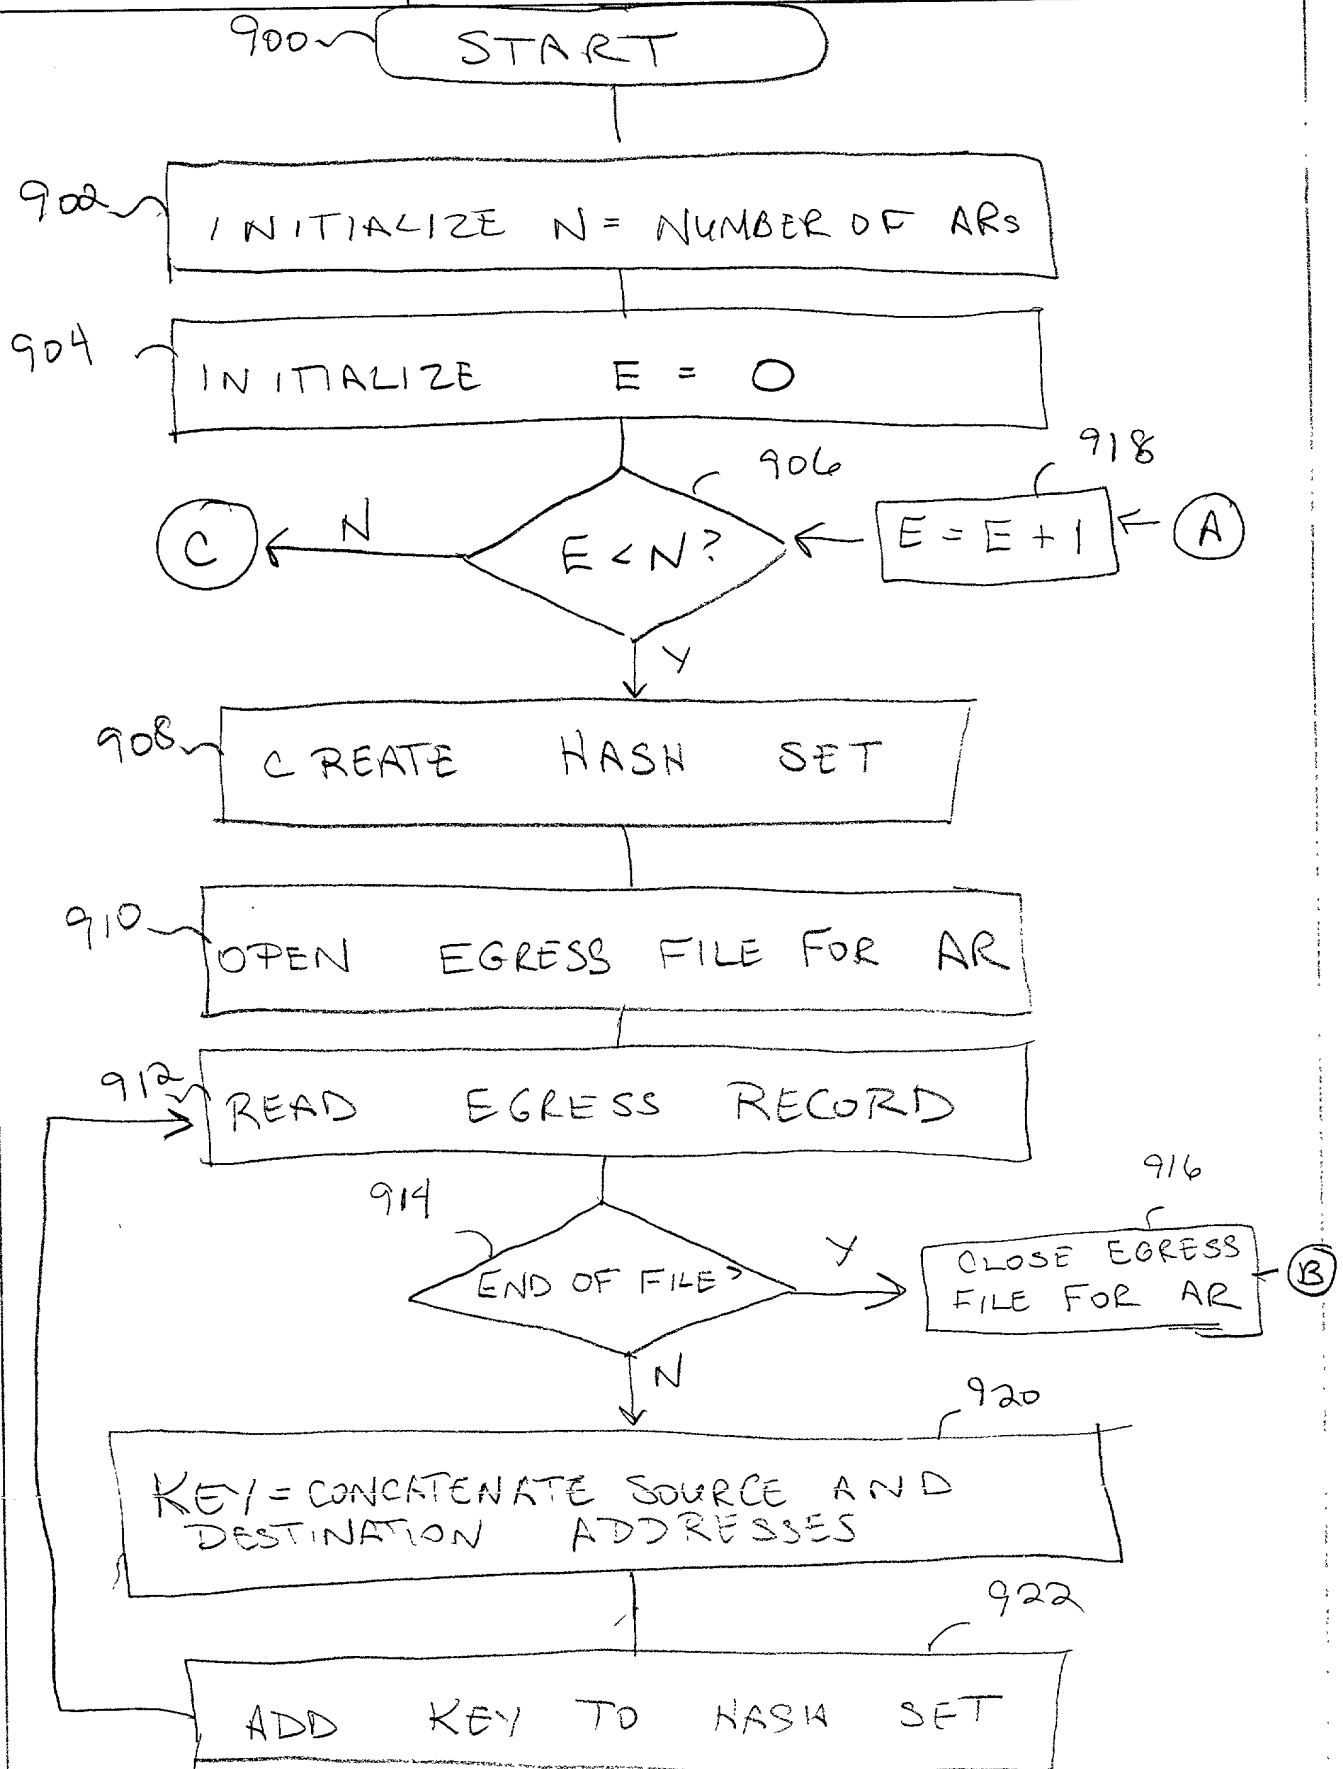 900 START
902 INITIALIZE N = NUMBER OF ARs
904 INITIALIZE E = 0
906
918
C N E < N? E = E + 1 A
Y
908 CREATE HASH SET
910 OPEN EGRESS FILE FOR AR
912 READ EGRESS RECORD
914
916
END OF FILE? Y CLOSE EGRESS
FILE FOR AR B
N
920
KEY = CONCATENATE SOURCE AND
DESTINATION ADDRESSES
922
ADD KEY TO HASH SET